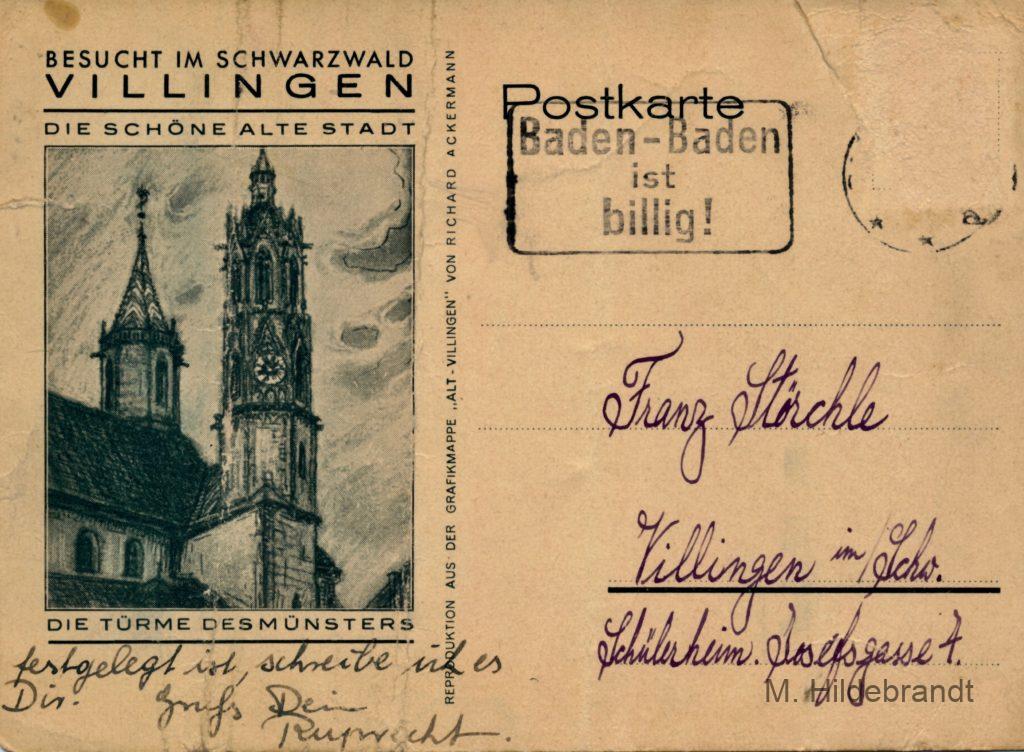 BESUCHT IM SCHWARZWALD
VILLINGEN
DIE SCHÖNE ALTE STADT
DIE TÜRME DES MÜNSTERS
festgelegt ist, schreibe ich es
Dir. Gruß Dein
Ruprecht.
REPRODUKTION AUS DER GRAFIKMAPPE „ALT-VILLINGEN" VON RICHARD ACKERMANN
Postkarte
Baden-Baden
ist
billig!
a
Franz Störchle
Villingen im/Schw.
Schülerheim. Josefsgasse 7.
M. Hildebrandt